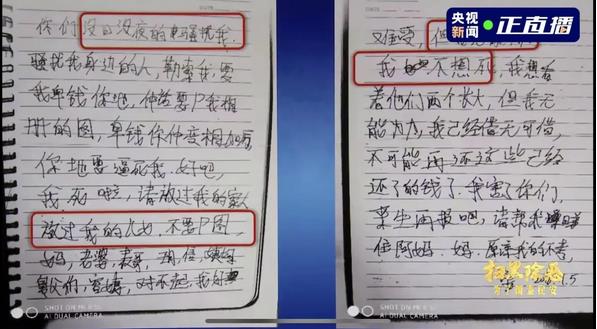 央视新闻 正直播
你们没日没夜的骚扰我,
骚扰我身边的人,勒索我,要
我卑钱你地,仲话要P我相
册的图,卑钱你仲变相加
你地要逼死我.好吧,
我死啦,请放过我的家人
放过我的儿女.不要P图
妈,老婆,表哥,
对不起,我好
难受,但
我不想死,我想看
着他们两个长大,但我无
能为力,我已经借无可借,
不可能再还这些已经
还了的钱了.我害了你们,
来生再报吧,请帮我
住阿妈.妈,原谅我的不孝,
扫黑除恶
SHOT ON MI
AI DUAL CAMERA
SHOT ON MI
AI DUAL CAMERA